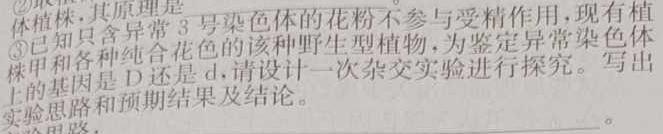 体植株,其原理是
③已知只含异常3号染色体的花粉不参与受精作用,现有植
株甲和各种纯合花色的该种野生型植物,为鉴定异常染色体
上的基因是D还是d,请设计一次杂交实验进行探究。写出
实验思路和预期结果及结论。
。